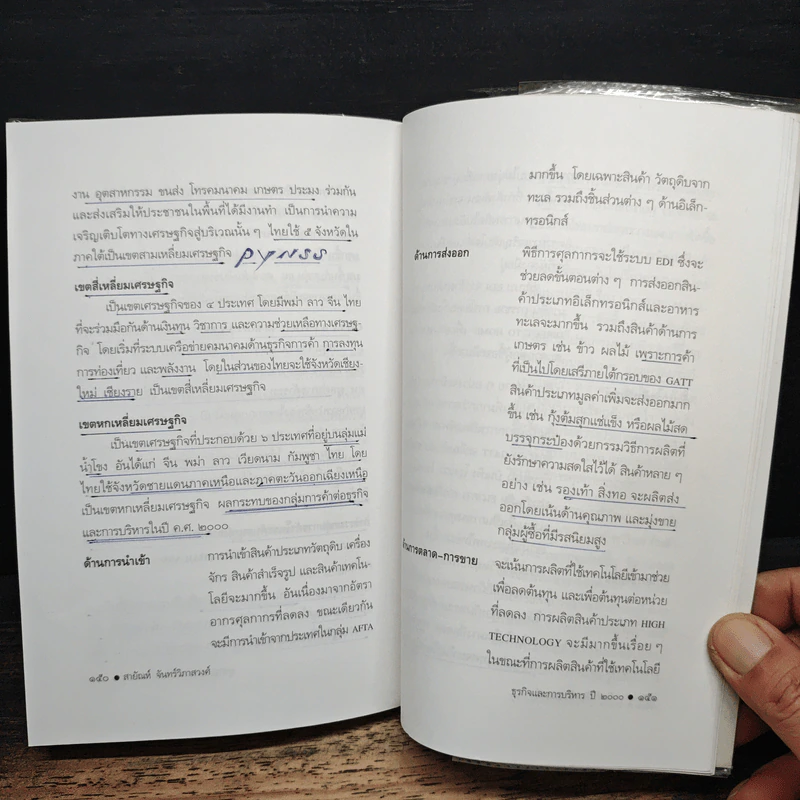 งาน อุตสาหกรรม ขนส่ง โทรคมนาคม เกษตร ประมง ร่วมกัน
และส่งเสริมให้ประชาชนในพื้นที่ได้มีงานทำ เป็นการนำความ
เจริญเติบโตทางเศรษฐกิจสู่บริเวณนั้น ๆ ไทยใช้ ๕ จังหวัดใน
ภาคใต้เป็นเขตสามเหลี่ยมเศรษฐกิจ
เขตสี่เหลี่ยมเศรษฐกิจ
เป็นเขตเศรษฐกิจของ ๔ ประเทศ โดยมีพม่า ลาว จีน ไทย
ที่จะร่วมมือกันด้านเงินทุน วิชาการ และความช่วยเหลือทางเศรษฐ-
กิจ โดยเริ่มที่ระบบเครือข่ายคมนาคมด้านธุรกิจการค้า การลงทุน
การท่องเที่ยว และพลังงาน โดยในส่วนของไทยจะใช้จังหวัดเชียง-
ใหม่ เชียงราย เป็นเขตสี่เหลี่ยมเศรษฐกิจ
เขตหกเหลี่ยมเศรษฐกิจ
เป็นเขตเศรษฐกิจที่ประกอบด้วย ๖ ประเทศที่อยู่บนลุ่มแม่
น้ำโขง อันได้แก่ จีน พม่า ลาว เวียดนาม กัมพูชา ไทย โดย
ไทยใช้จังหวัดชายแดนภาคเหนือและภาคตะวันออกเฉียงเหนือ
เป็นเขตหกเหลี่ยมเศรษฐกิจ ผลกระทบของกลุ่มการค้าต่อธุรกิจ
และการบริหารในปี ค.ศ. ๒๐๐๐
ด้านการนำเข้า การนำเข้าสินค้าประเภทวัตถุดิบ เครื่อง
จักร สินค้าสำเร็จรูป และสินค้าเทคโน-
โลยีจะมากขึ้น อันเนื่องมาจากอัตรา
อากรศุลกากรที่ลดลง ขณะเดียวกัน
จะมีการนำเข้าจากประเทศในกลุ่ม AFTA
๑๕๐ ● สายัณห์ จันทร์วิภาสวงศ์
มากขึ้น โดยเฉพาะสินค้า วัตถุดิบจาก
ทะเล รวมถึงชิ้นส่วนต่าง ๆ ด้านอิเล็ก-
ทรอนิกส์
ด้านการส่งออก พิธีการศุลกากรจะใช้ระบบ EDI ซึ่งจะ
ช่วยลดขั้นตอนต่าง ๆ การส่งออกสิน-
ค้าประเภทอิเล็กทรอนิกส์และอาหาร
ทะเลจะมากขึ้น รวมถึงสินค้าด้านการ
เกษตร เช่น ข้าว ผลไม้ เพราะการค้า
ที่เป็นไปโดยเสรีภายใต้กรอบของ GATT
สินค้าประเภทมูลค่าเพิ่มจะส่งออกมาก
ขึ้น เช่น กุ้งต้มสุกแช่แข็ง หรือผลไม้สด
บรรจุกระป๋องด้วยกรรมวิธีการผลิตที่
ยังรักษาความสดใสไว้ได้ สินค้าหลาย ๆ
อย่าง เช่น รองเท้า สิ่งทอ จะผลิตส่ง
ออกโดยเน้นด้านคุณภาพ และมุ่งขาย
กลุ่มผู้ซื้อที่มีรสนิยมสูง
ด้านการตลาด–การขาย จะเน้นการผลิตที่ใช้เทคโนโลยีเข้ามาช่วย
เพื่อลดต้นทุน และเพื่อต้นทุนต่อหน่วย
ที่ลดลง การผลิตสินค้าประเภท HIGH
TECHNOLOGY จะมีมากขึ้นเรื่อย ๆ
ในขณะที่การผลิตสินค้าที่ใช้เทคโนโลยี
ธุรกิจและการบริหาร ปี ๒๐๐๐ ● ๑๕๑